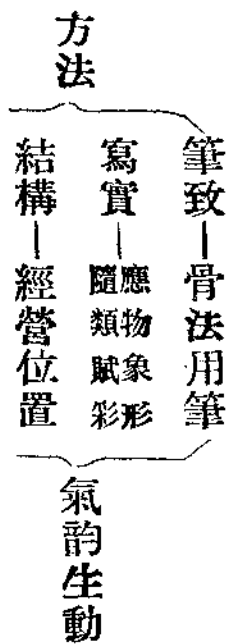 方法
筆致—骨法用筆
寫實—應物象形
隨類賦彩
結構—經營位置
氣韵生動